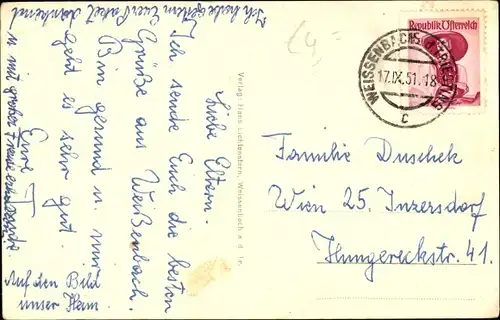 Liebe Eltern.
Ich sende Euch die besten
Grüße aus Weißenbach.
Bin gesund u. mir
geht es sehr gut.
Eure
Auf den Bild
unser Heim
Ich habe gestern Euer Paket dankend
u. mit großer Freude
Verlag: Hans Lichtenstern, Weissenbach a. d. Tr.
Republik Österreich
WEISSENBACH a. d. TRIESTING
17.IX.51.18
c
Familie Duschek
Wien 25. Inzersdorf
Hungereckstr. 41.